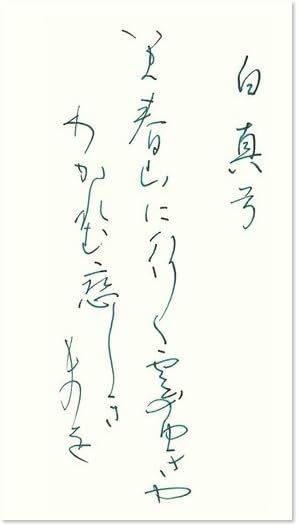 白真弓
いま春山に行く雲のゆきや
わかれむ恋しき
ものを